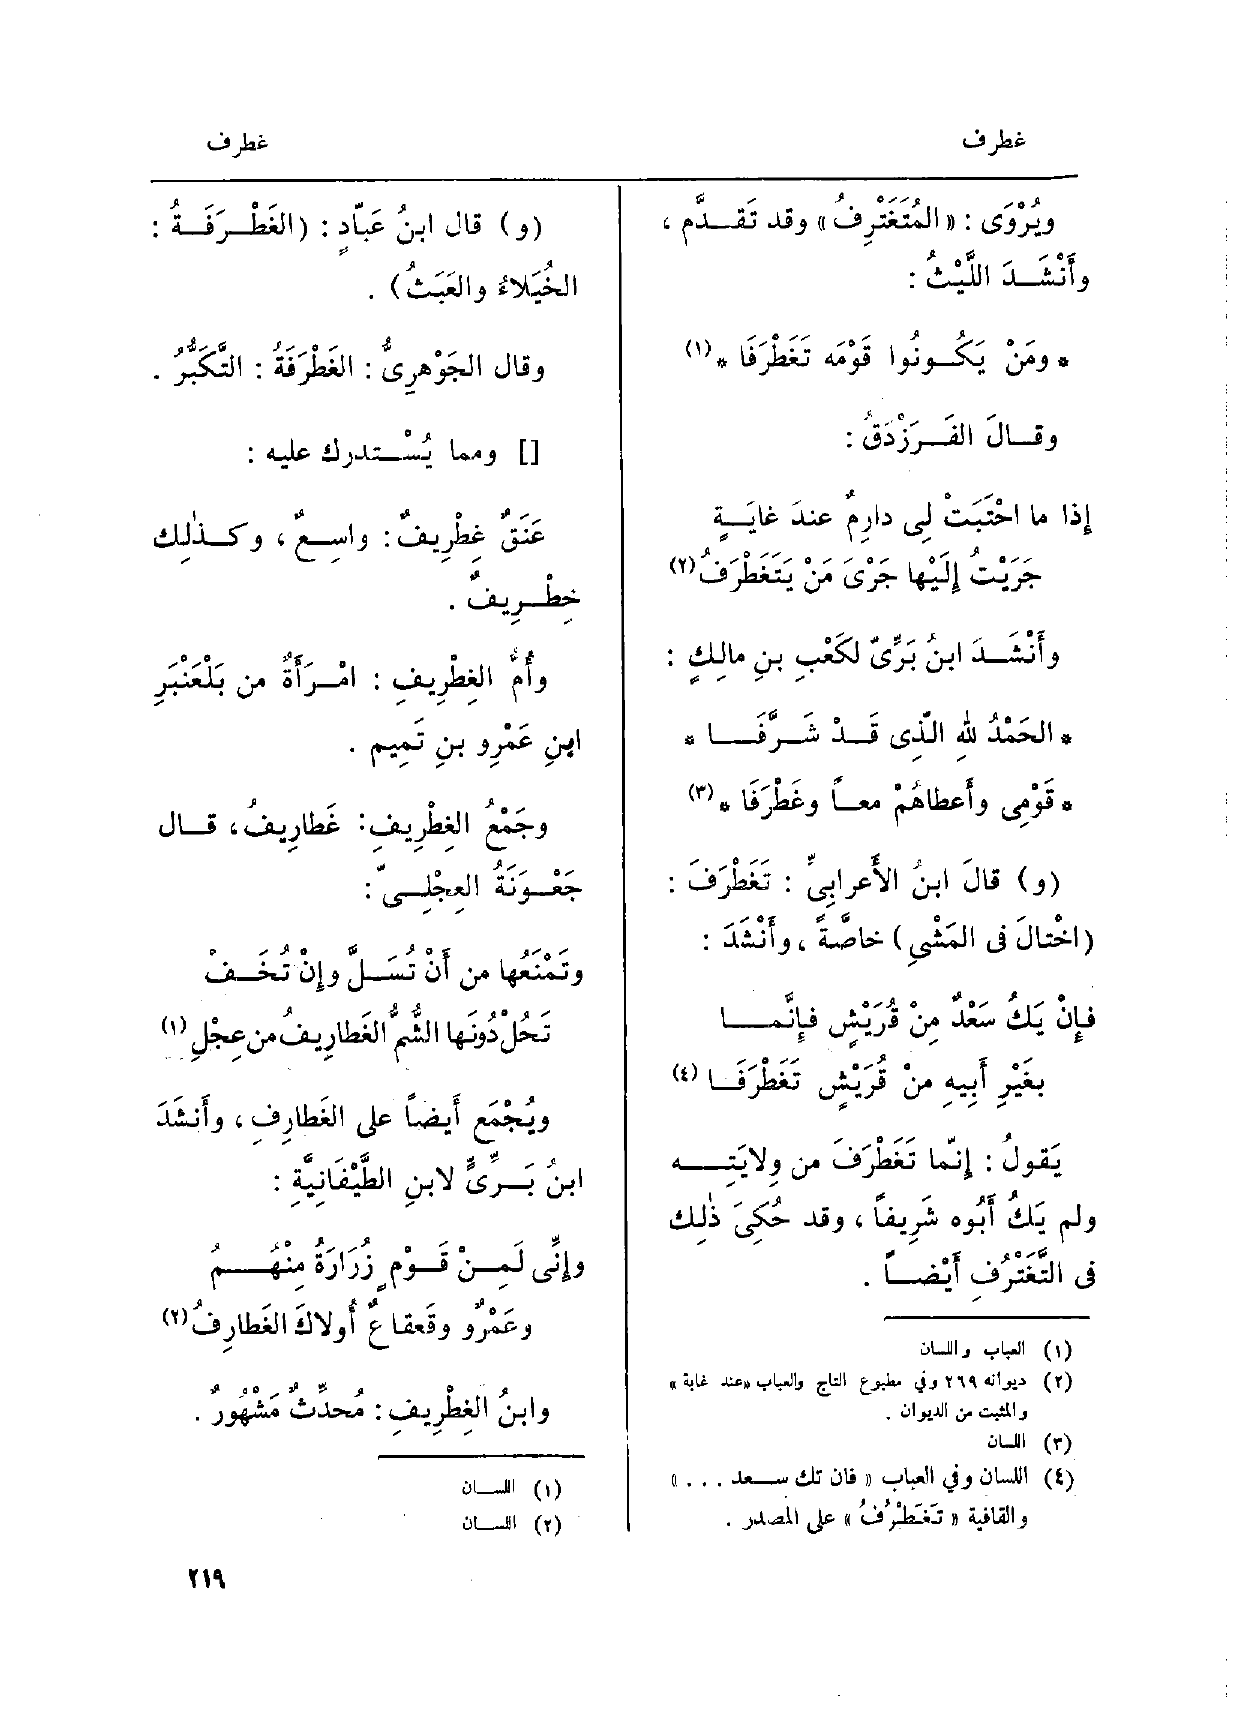 غطرف
غطرف
ويُرْوَى : « المُتَغَتْرِفُ » وقد تَقَـدَّم ،
وأَنْشَـدَ اللَّيْثُ :
* ومَنْ يَكُـونُوا قَوْمَه تَغَطْرَفَا * (١)
وقـالَ الفَـرَزْدَقُ :
إِذا ما احْتَبَتْ لِى دارِمٌ عندَ غايَـةٍ
جَرَيْتُ إِلَيْها جَرْىَ مَنْ يَتَغَطْرَفُ (٢)
وأَنْشَـدَ ابنُ بَرِّىّ لكَعْبِ بنِ مالِكٍ :
* الحَمْدُ للهِ الّذِى قَـدْ شَـرَّفَـا *
* قَوْمِى وأَعطاهُمْ معـاً وغَطْرَفَا * (٣)
(و) قالَ ابنُ الأَعرابِىِّ : تَغَطْرَفَ :
(اخْتالَ فى المَشْىِ) خاصَّةً ، وأَنْشَدَ :
فإِنْ يَكُ سَعْدٌ مِنْ قُرَيْشٍ فإِنَّمـا
بغَيْرِ أَبِيهِ مِنْ قُرَيْشٍ تَغَطْرَفَـا (٤)
يَقولُ : إِنّما تَغَطْرَفَ من وِلايَتِـه
ولم يَكُ أَبُوه شَرِيفاً ، وقد حُكِىَ ذٰلك
فى التَّغَتْرُفِ أَيْضـاً .
(١) العباب واللسان
(٢) ديوانه ٢٦٩ وفي مطبوع التاج والعباب «عند غابة»
والمثبت من الديوان .
(٣) اللسان
(٤) اللسان وفي العباب « فان تك سـعد . . . »
والقافية « تَغَطْرُفُ » على المصدر .
(و) قال ابنُ عَبّادٍ : (الغَطْـرَفَـةُ :
الخُيَلاءُ والعَبَثُ) .
وقال الجَوْهرِىُّ : الغَطْرَفَةُ : التَّكَبُّرُ .
[] ومما يُسْـتدرك عليه :
عَنَقٌ غِطْرِيفٌ : واسِـعٌ ، وكـذٰلِك
خِطْـرِيفٌ .
وأُمُّ الغِطْرِيفِ : امْـرَأَةٌ من بَلْعَنْبَرِ
ابنِ عَمْرِو بنِ تَمِيم .
وجَمْعُ الغِطْرِيفِ : غَطارِيفُ ، قـال
جَعْـوَنَةُ العِجْلِـىّ :
وتَمْنَعُها من أَنْ تُسَـلَّ وإِنْ تُخَـفْ
تَحُلْ دُونَها الشُّمُّ الغَطارِيفُ من عِجْلِ (١)
ويُجْمَع أَيضاً على الغَطارِفِ ، وأَنشَدَ
ابنُ بَـرِّىٍّ لابنِ الطَّيْفانِيَّةِ :
وإِنِّى لَمِـنْ قَـوْمٍ زُرَارَةُ مِنْهُـمُ
وعَمْرٌو وقَعقاعٌ أُولاكَ الغَطارِفُ (٢)
وابنُ الغِطْرِيفِ : مُحدِّثٌ مَشْهُورٌ .
(١) اللسـان
(٢) اللسـان
٢١٩